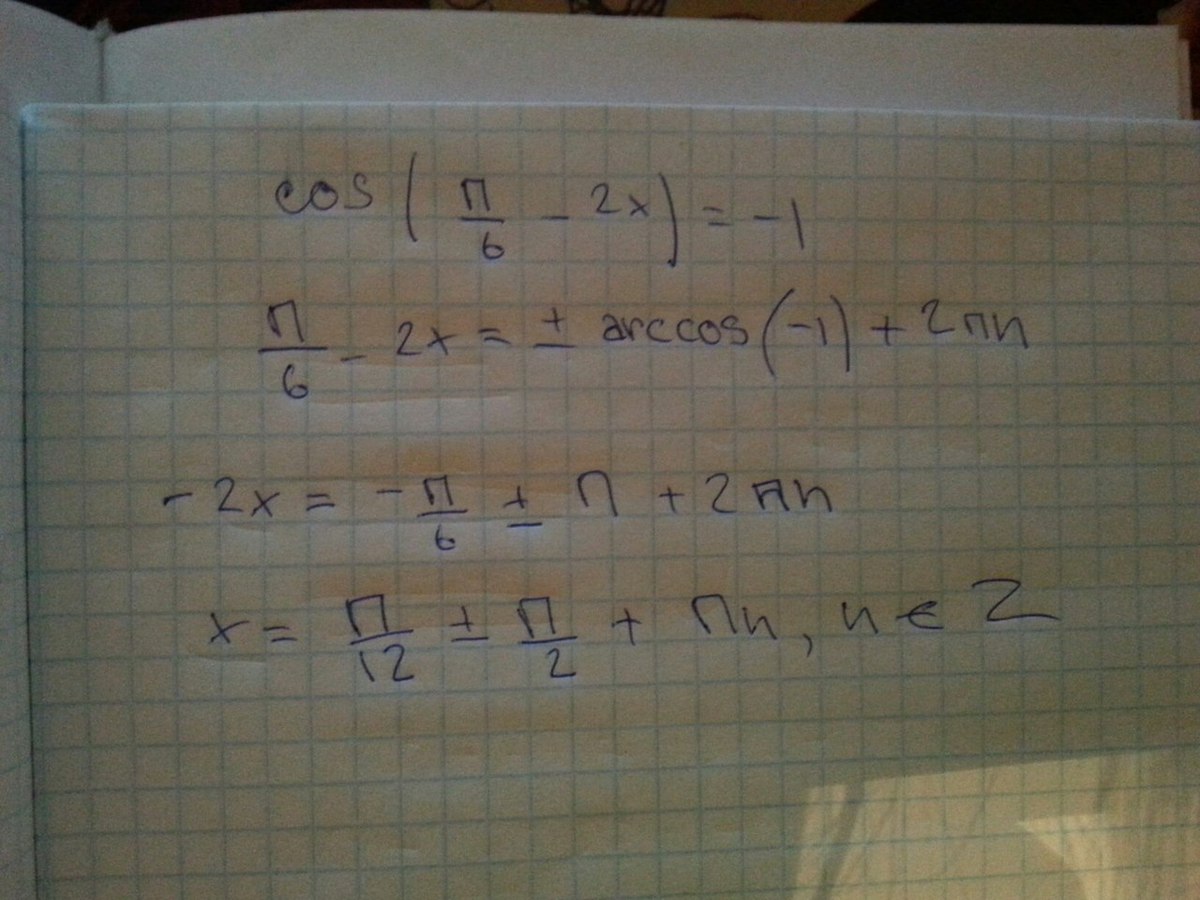 cos(π/6 - 2x) = -1
π/6 - 2x = ± arccos(-1) + 2πn
-2x = -π/6 ± π + 2πn
x = π/12 ± π/2 + πn, n ∈ Z